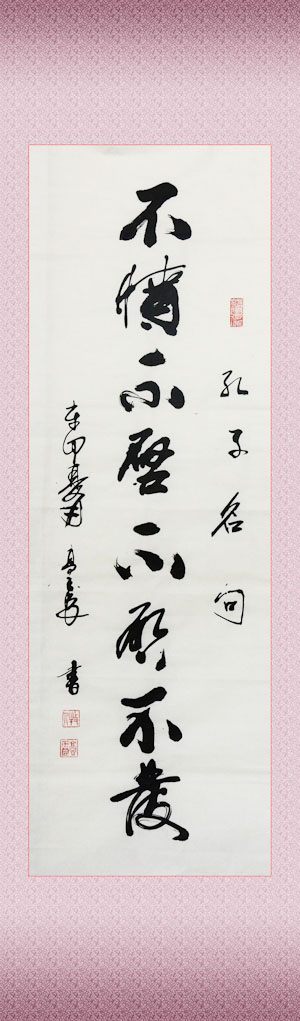 孔子名句
不憤不啓不悱不發
書